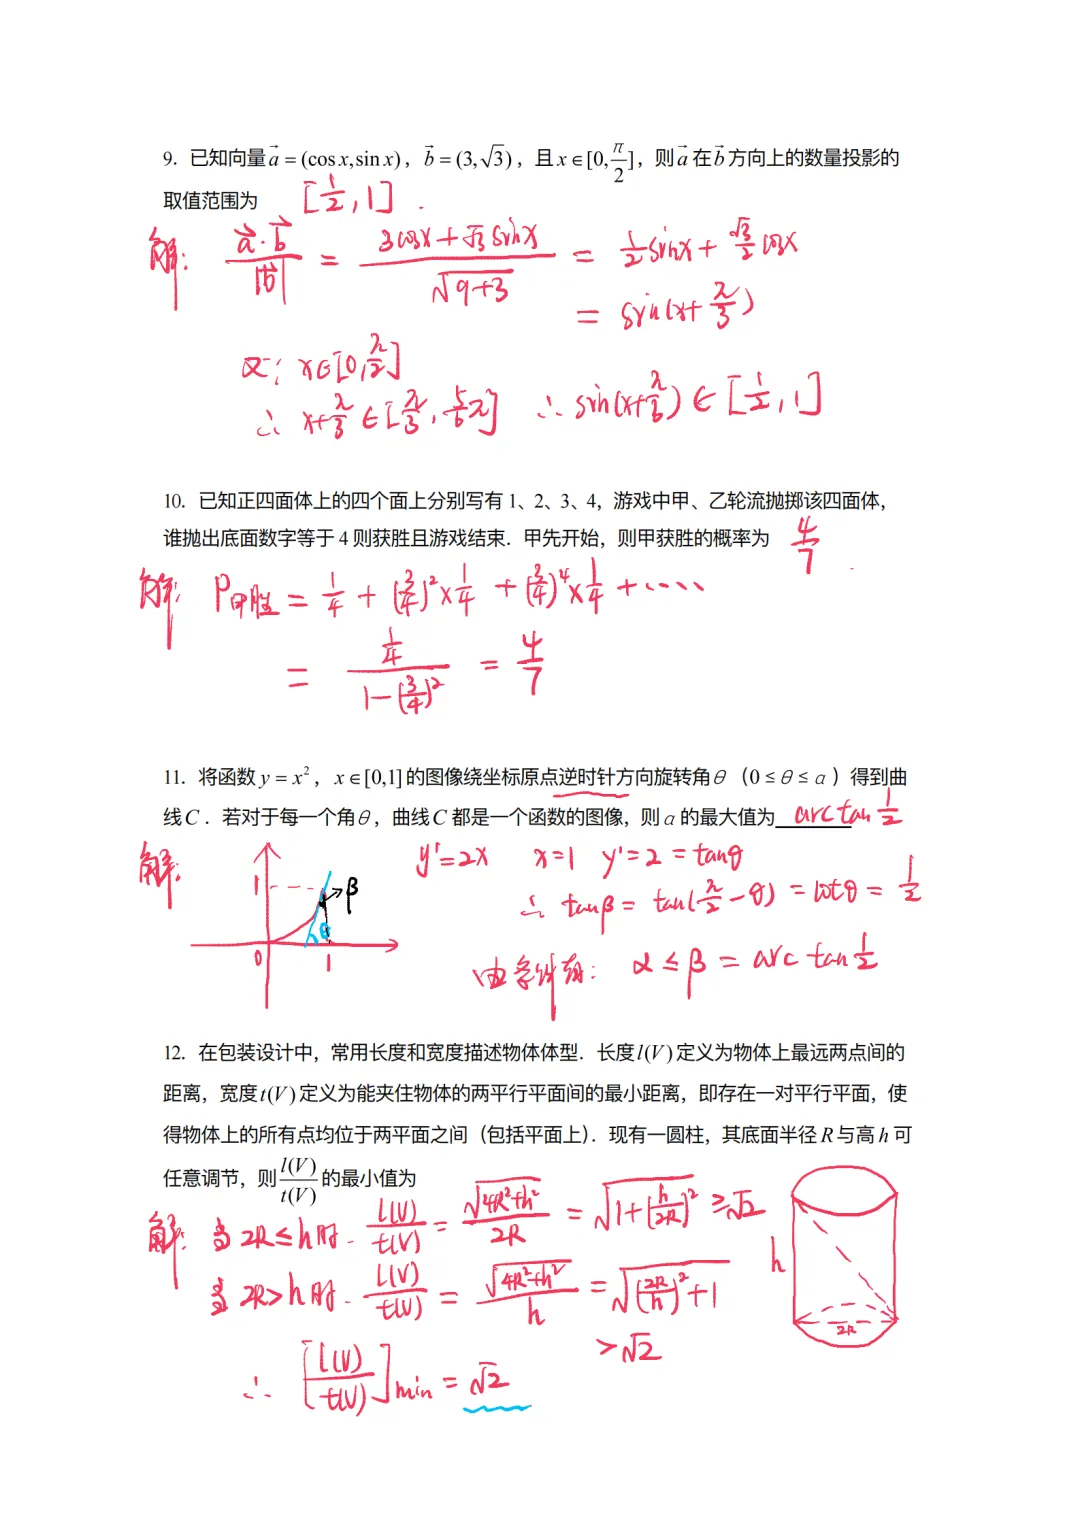 9. 已知向量a⃗ = (cos x, sin x)，b⃗ = (3, √3)，且 x∈[0, π/2]，则a⃗ 在b⃗ 方向上的数量投影的
取值范围为 [1/2, 1].
解: a⃗·b⃗/|b⃗| = (3cosx+√3 sinx)/√(9+3) = 1/2 sinx + √3/2 cosx
= sin(x+π/3)
又∵ x∈[0, π/2]
∴ x+π/3 ∈ [π/3, 5/6 π] ∴ sin(x+π/3) ∈ [1/2, 1]
10. 已知正四面体上的四个面上分别写有 1、2、3、4，游戏中甲、乙轮流抛掷该四面体，
谁抛出底面数字等于 4 则获胜且游戏结束．甲先开始，则甲获胜的概率为 4/7 .
解: P甲胜 = 1/4 + (3/4)²×1/4 + (3/4)⁴×1/4 + ····
= (1/4)/(1-(3/4)²) = 4/7
11. 将函数 y = x²，x∈[0,1]的图像绕坐标原点逆时针方向旋转角θ（0≤θ≤α）得到曲
线C．若对于每一个角θ，曲线C 都是一个函数的图像，则α的最大值为 arctan 1/2
解: y'=2x x=1 y'=2 = tanθ
1 β θ 0 1
∴ tanβ = tan(π/2-θ) = cotθ = 1/2
由条件有: α ≤ β = arctan 1/2
12. 在包装设计中，常用长度和宽度描述物体体型．长度l(V)定义为物体上最远两点间的
距离，宽度t(V)定义为能夹住物体的两平行平面间的最小距离，即存在一对平行平面，使
得物体上的所有点均位于两平面之间（包括平面上）．现有一圆柱，其底面半径R与高h可
任意调节，则 l(V)/t(V) 的最小值为
解: 当2R≤h时. l(V)/t(V) = √(4R²+h²)/2R = √(1+(h/2R)²) ≥√2
当2R>h时. l(V)/t(V) = √(4R²+h²)/h = √((2R/h)²+1)
>√2
h 2R
∴ [l(V)/t(V)]min = √2